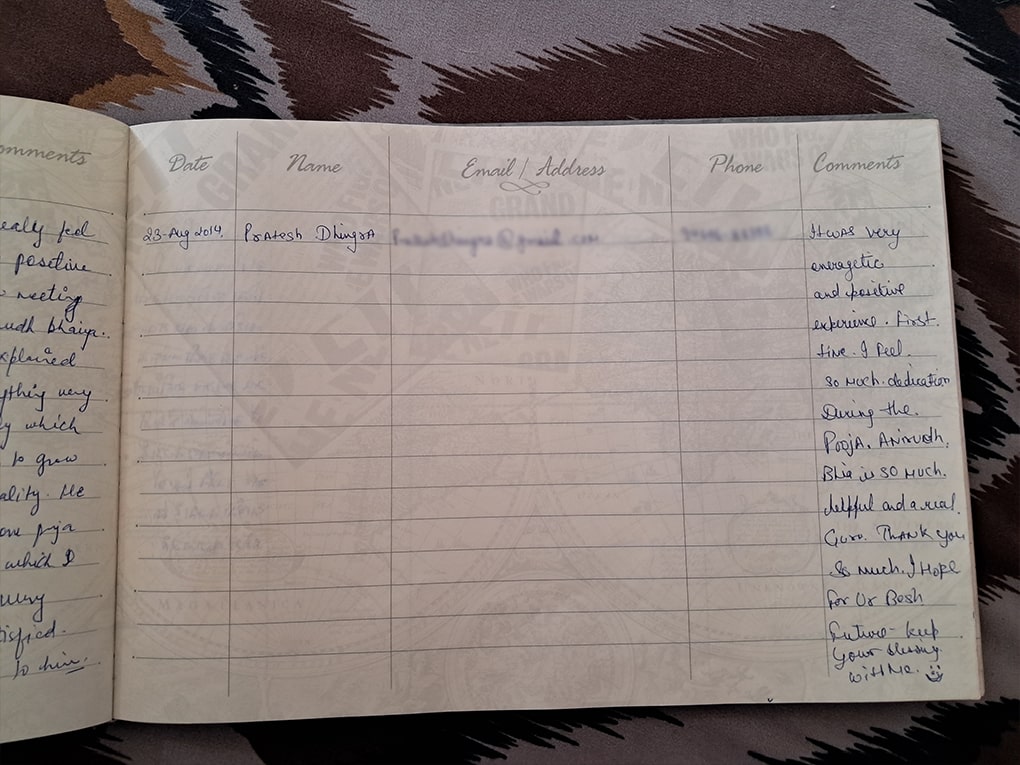 omments
eally feel
positive
meeting
udh bhaiya.
xplained
ything very
y which
to grow
ality. He
one puja
which I
very
tisfied.
to him.
Date Name Email / Address Phone Comments
23-Aug 2014. PrAtesh DhingrA It was very
energetic
and positive
experience. First.
time. I Feel.
so much. dedication
During the.
PoojA. Anirudh.
Bhia is so much.
helpful and a real.
Guru. Thank you
So much. I Hope
For Ur Besh
Future - keep
your blessing
with Me.